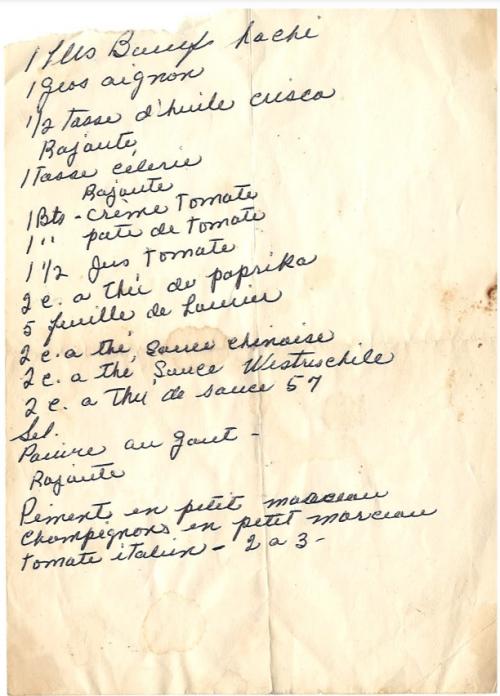 1 Lbs Boeuf haché
1 gros oignon
1/2 tasse d'huile crisco
Rajoute
1 tasse célerie
Rajoute
1 Bts - crème tomate
1 " pate de tomate
1 1/2 jus tomate
2 c. a thé de paprika
5 feuille de Laurier
2 c. a thé, Sauce chinoise
2 c. a thé, Sauce Westrischile
2 c. a thé de sauce 57
Sel.
Poivre au gout -
Rajoute
Piment en petit morceau
Champignons en petit morceau
tomate italien - 2 a 3 -